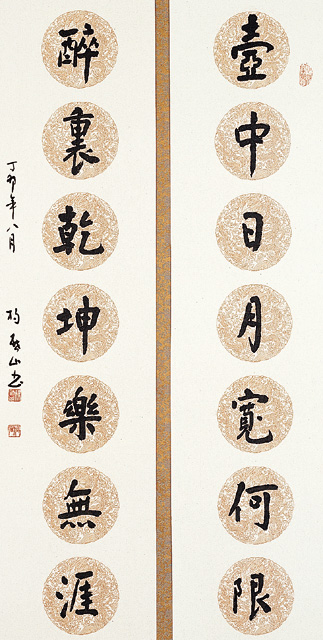 壺中日月寬何限
醉裏乾坤樂無涯
丁卯年八月
山书